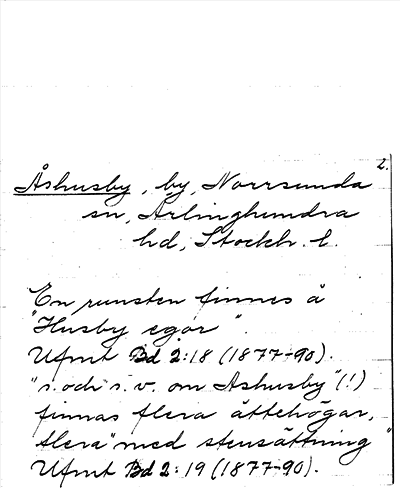 2.
Åshusby, by, Norrsunda
sn, Ärlinghundra
hd, Stockh. l.
En runsten finnes å
"Husby egor".
Ufmt Bd 2:18 (1877-90).
"i och s. v. om Åshusby" (!)
finnas flera ättehögar,
flera "med stensättning"
Ufmt Bd 2:19 (1877-90).